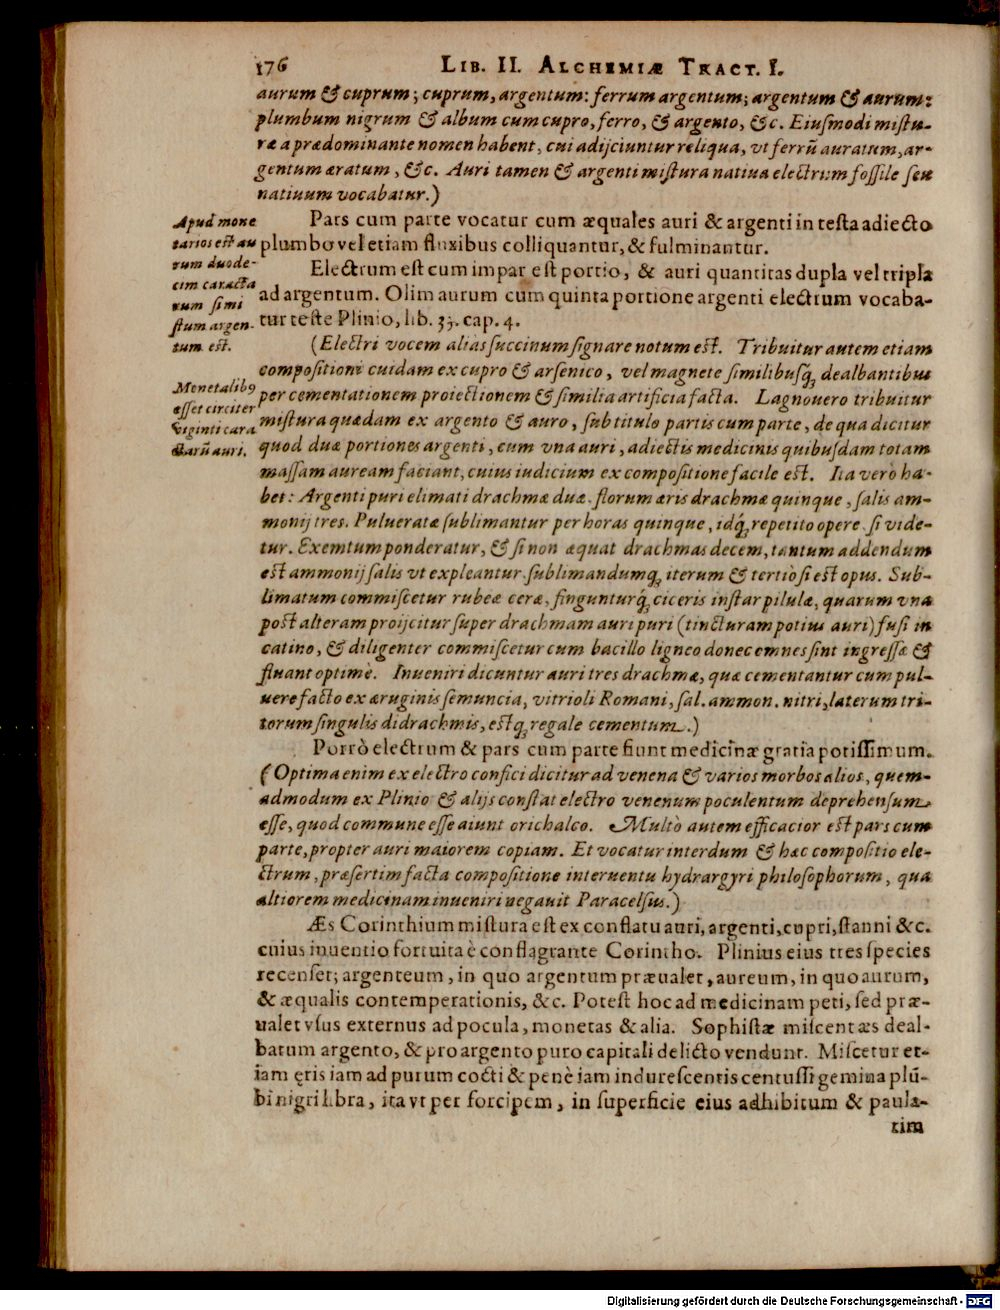 176 LIB. II. ALCHEMIÆ TRACT. I.
aurum & cuprum; cuprum, argentum: ferrum argentum; argentum & aurum:
plumbum nigrum & album cum cupro, ferro, & argento, &c. Eiuſmodi miſtu-
ræ a prædominante nomen habent, cui adijciuntur reliqua, vt ferrũ auratum, ar-
gentum æratum, &c. Auri tamen & argenti miſtura natiua electrum foſſile ſeu
natiuum vocabatur.)
Pars cum parte vocatur cum æquales auri & argenti in teſta adiecto
plumbo vel etiam fluxibus colliquantur, & fulminantur.
Electrum eſt cum impar eſt portio, & auri quantitas dupla vel tripla
ad argentum. Olim aurum cum quinta portione argenti electrum vocaba-
tur teſte Plinio, lib. 33. cap. 4.
Apud mone
tarios est au
rum duode-
cim caracta
rum ſimi
ſtum argen-
tum est.
(Electri vocem alias ſuccinum ſignare notum est. Tribuitur autem etiam
compoſitioni cuidam ex cupro & arſenico, vel magnete ſimilibuſq́; dealbantibus
per cementationem proiectionem & ſimilia artificia facta. Lagnouero tribuitur
miſtura quædam ex argento & auro, ſub titulo partis cum parte, de qua dicitur
quod duæ portiones argenti, cum vna auri, adiectis medicinis quibuſdam totam
maſſam auream faciant, cuius iudicium ex compoſitione facile est. Ita verò ha-
bet: Argenti puri elimati drachmæ duæ, florum æris drachmæ quinque, ſalis am-
monij tres. Puluerata ſublimantur per horas quinque, idq́; repetito opere ſi vide-
tur. Exemtum ponderatur, & ſi non æquat drachmas decem, tantum addendum
est ammonij ſalis vt expleantur, ſublimandumq́; iterum & tertiò ſi est opus. Sub-
limatum commiſcetur rubeæ ceræ, fingunturq́; ciceris inſtar pilulæ, quarum vna
post alteram proijcitur ſuper drachmam auri puri (tincturam potius auri) fuſi in
catino, & diligenter commiſcetur cum bacillo ligneo donec omnes ſint ingreſſæ &
fluant optimè. Inueniri dicuntur auri tres drachmæ, quæ cementantur cum pul-
uere facto ex æruginis ſemuncia, vitrioli Romani, ſal. ammon. nitri, laterum tri-
torum ſingulis didrachmis, estq́; regale cementum.)
Monetalibꝰ
eſſet circiter
viginti cara
ctarũ auri.
Porrò electrum & pars cum parte fiunt medicinæ gratia potiſſimum.
(Optima enim ex electro confici dicitur ad venena & varios morbos alios, quem-
admodum ex Plinio & alijs conſtat electro venenum poculentum deprehenſum
eſſe, quod commune eſſe aiunt orichalco. Multò autem efficacior est pars cum
parte, propter auri maiorem copiam. Et vocatur interdum & hæc compoſitio ele-
ctrum, præſertim facta compoſitione interuentu hydrargyri philoſophorum, qua
altiorem medicinam inueniri negauit Paracelſus.)
Æs Corinthium miſtura eſt ex conflatu auri, argenti, cupri, ſtanni &c.
cuius inuentio fortuita è conflagrante Corintho. Plinius eius tres ſpecies
recenſet; argenteum, in quo argentum præualet, aureum, in quo aurum,
& æqualis contemperationis, &c. Poteſt hoc ad medicinam peti, ſed præ-
ualet vſus externus ad pocula, monetas & alia. Sophiſtæ miſcent æs deal-
batum argento, & pro argento puro capitali delicto vendunt. Miſcetur et-
iam ęris iam ad purum cocti & penè iam indureſcentis centuſſi gemina plũ-
bi nigri libra, ita vt per forcipem, in ſuperficie eius adhibitum & paula-
tim
Digitalisierung gefördert durch die Deutsche Forschungsgemeinschaft - DFG